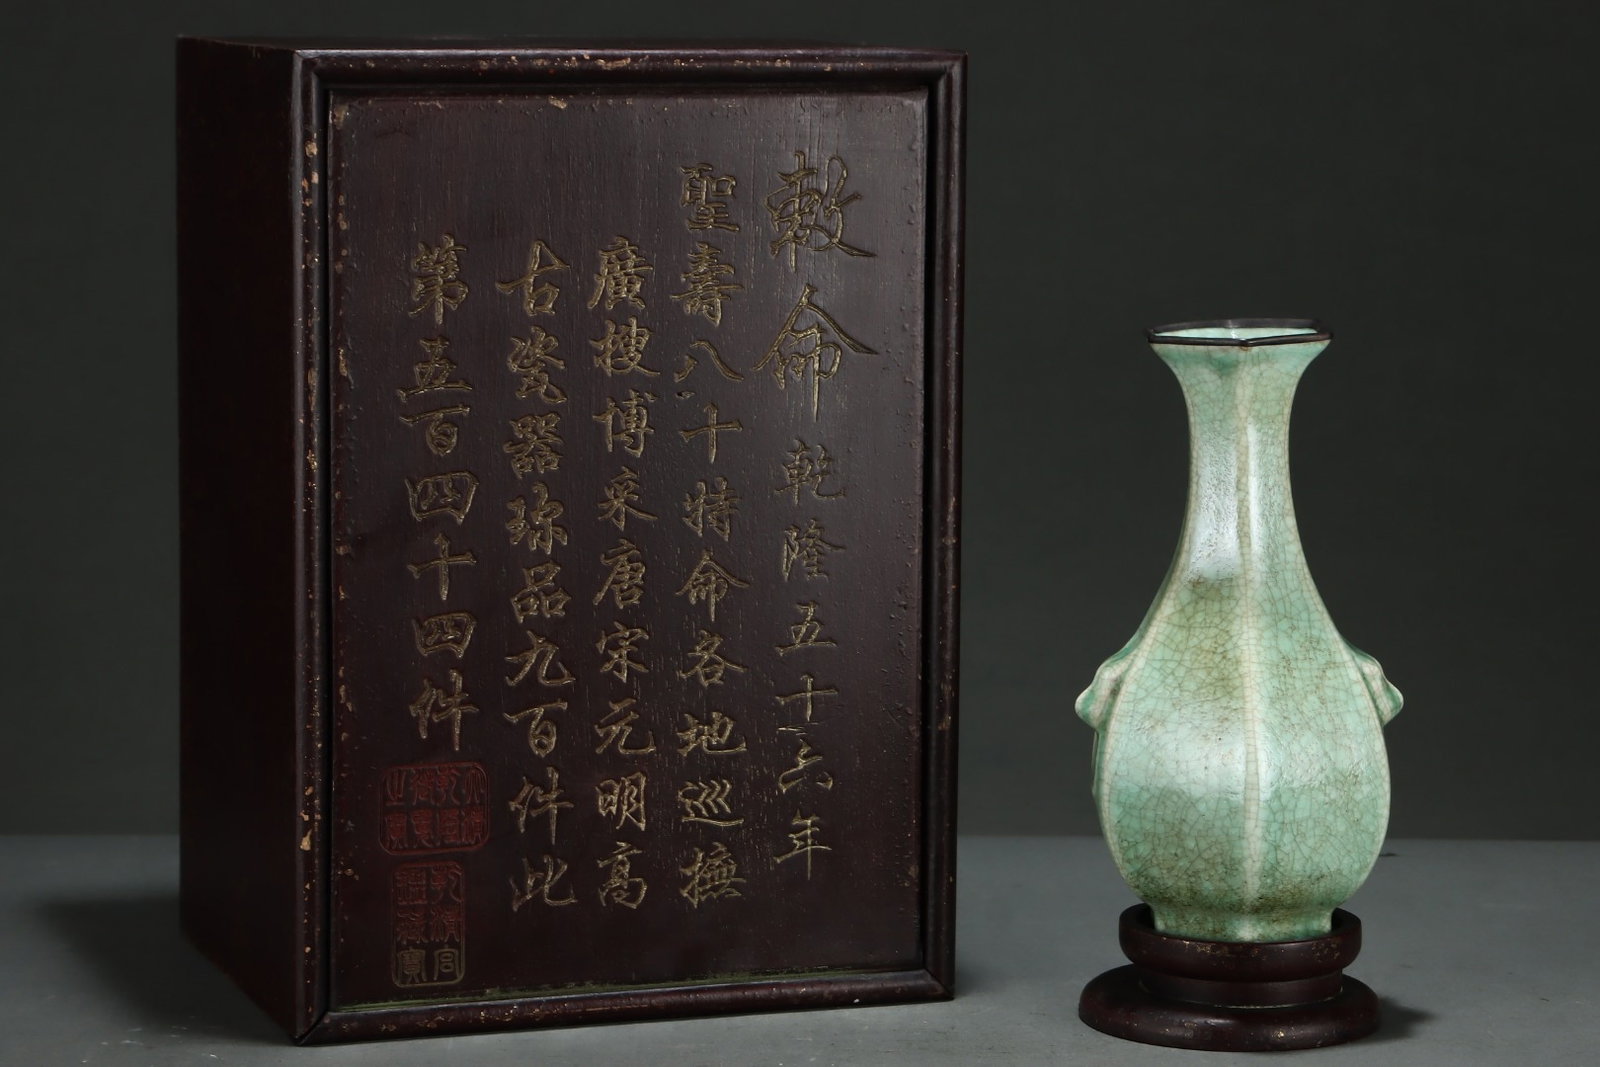 敕命乾隆五十六年
聖壽八十特命各地巡撫
廣搜博采唐宋元明高
古瓷器珎品九百件此
第五百四十四件
乾清宮